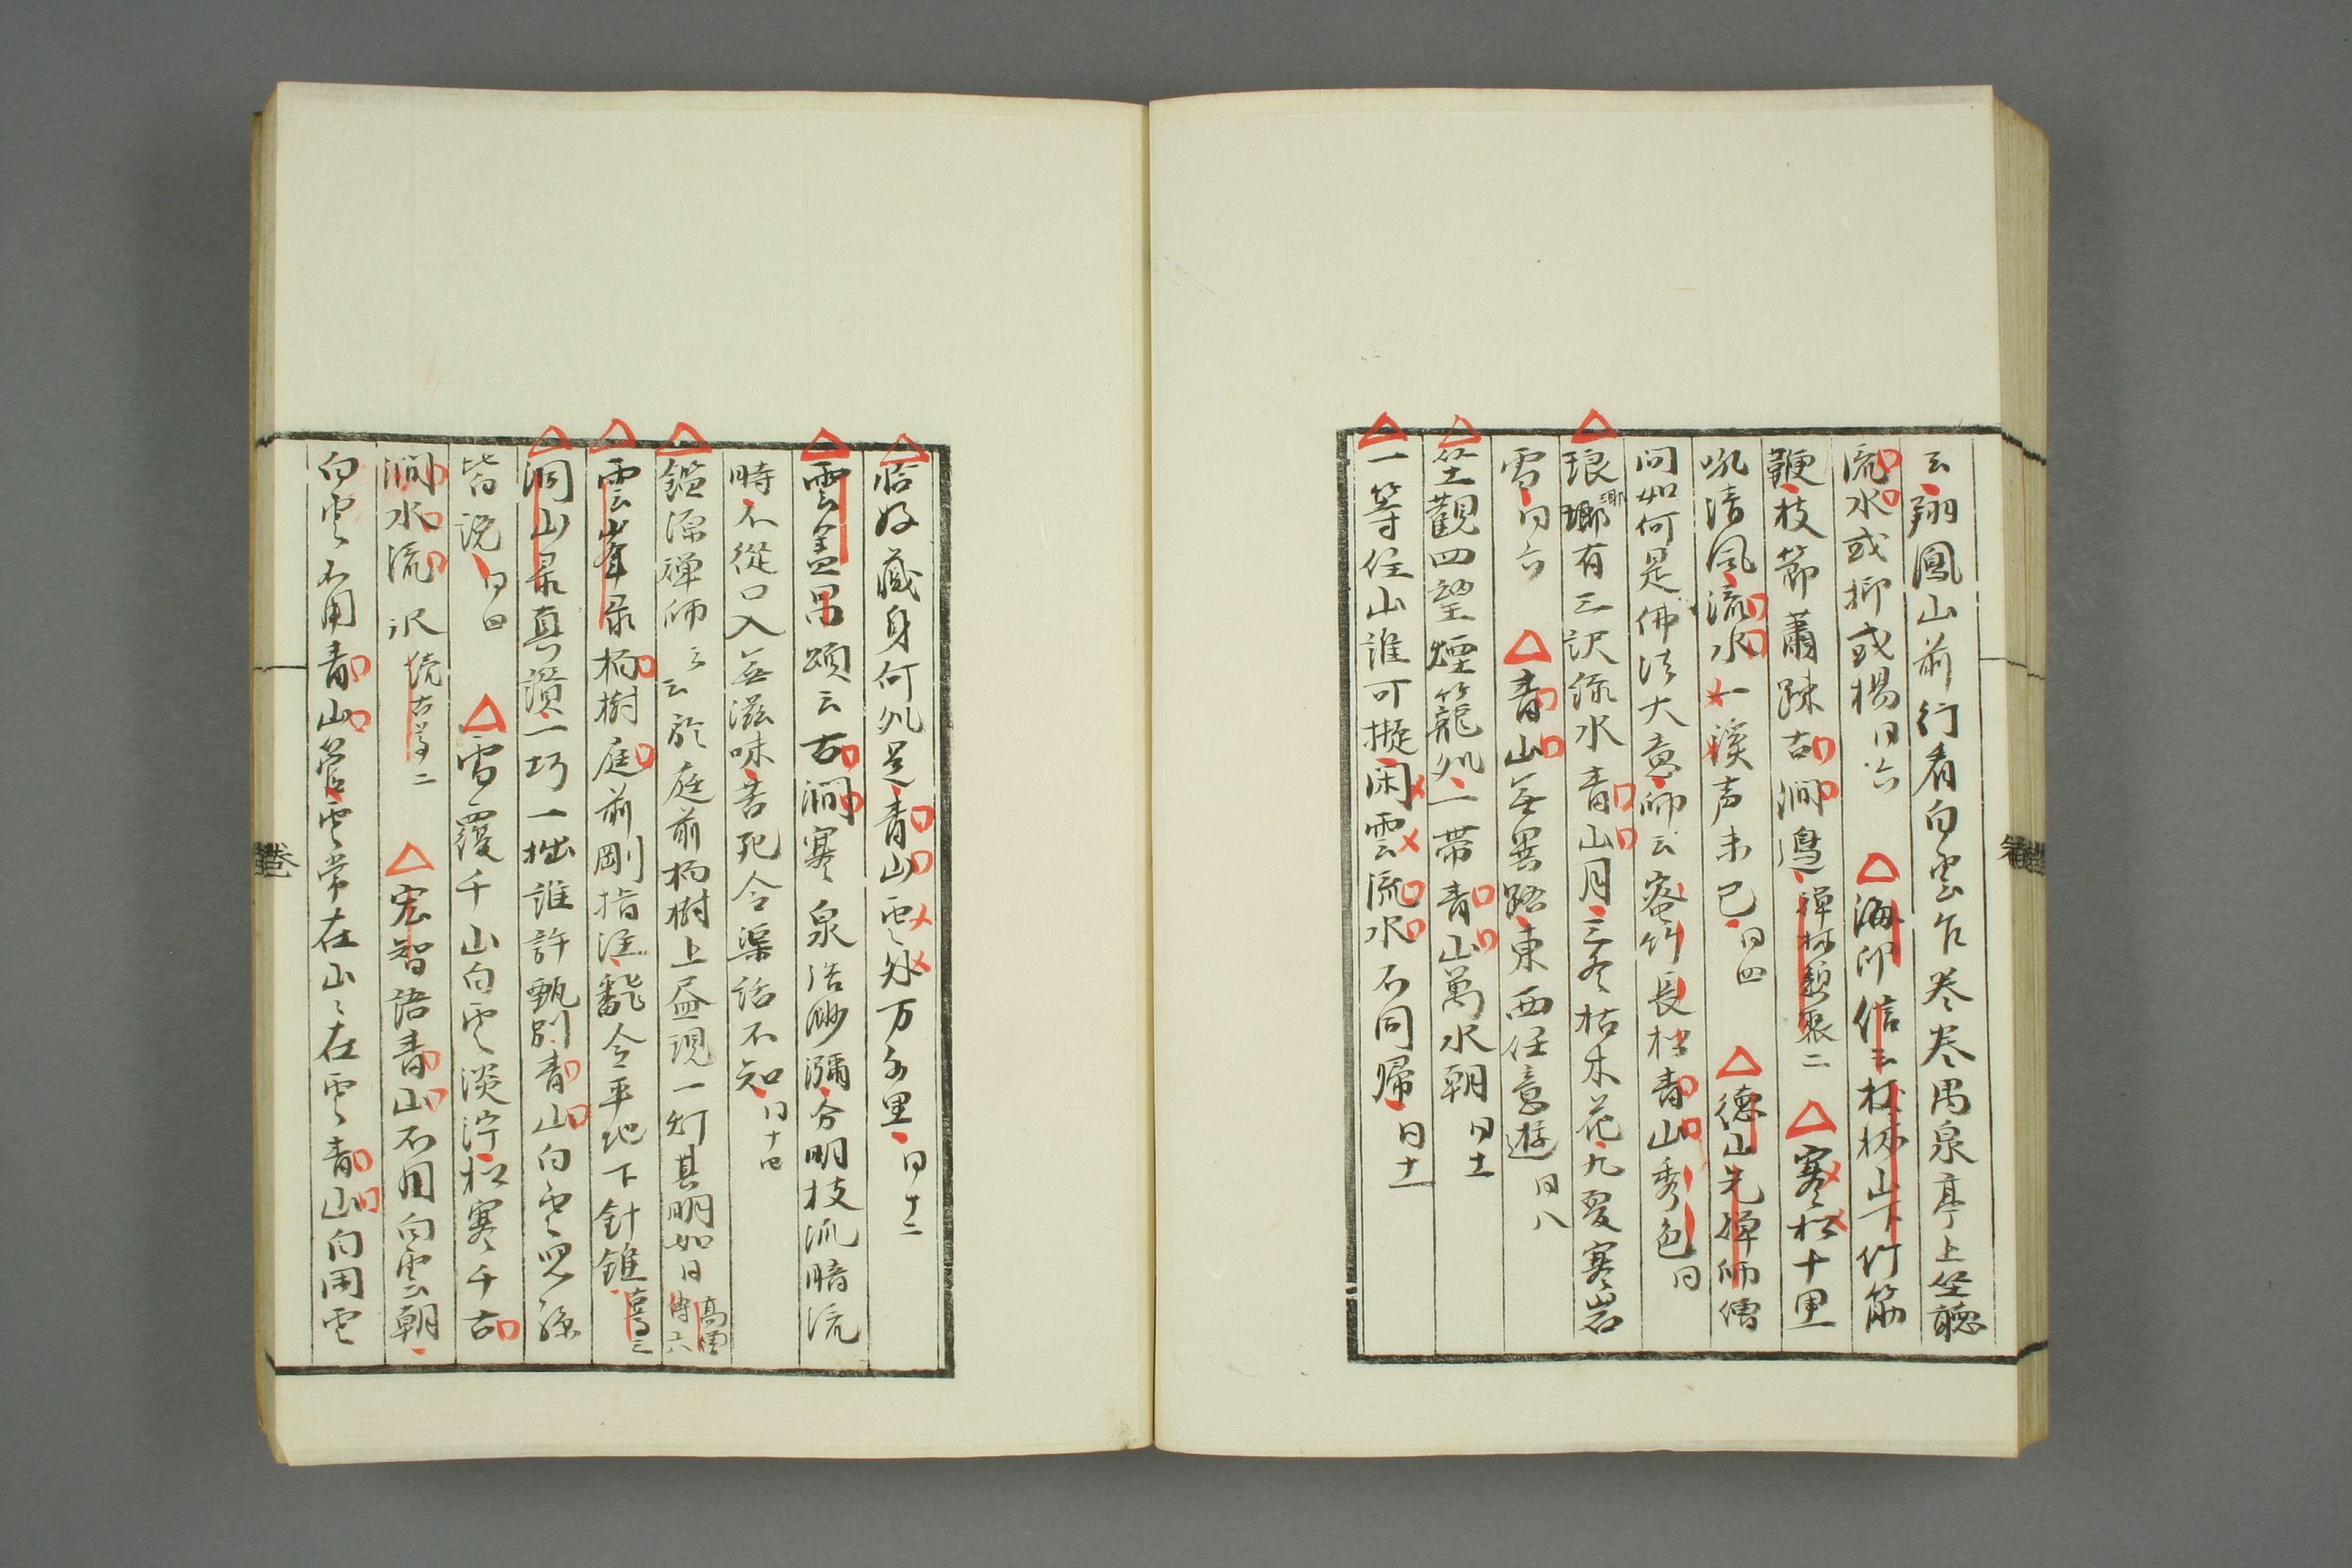 云翔鳳山前行看白雲乍卷卷禺泉亭上坐聽
流水或抑或揚 同六 △海印信云杖挑山下竹筋
鞭枝節蕭踈古澗邊 禪林類聚二 △寒松十里
吼清風流水一溪声未已 同四 △德山先禅師僧
問如何是佛法大意師云密竹長松青山秀色 同
△琅瑘有三訣流水青山月三冬枯木花九夏寒岩
雪 同六 △青山無異路東西任意遊 同八
△坐觀四望煙籠処一帯青山萬水朝 同十一
△一等住山誰可擬閑雲流水不同帰 同十一
△恰好藏身何処是青山雲外万多里 同十二
△雲盖昌頌云古澗寒泉浩渺瀰分明枝派暗流
時不從口入無滋味苦死令渠話不知 同十四
△鑑源禅師云於庭前柏樹上盡現一灯其明如日 高僧傳六
△雲峯录柏樹庭前剛指注飜令平地下針錐 古尊三
△洞山录真讃一巧一拙誰許甄別青山白雲児孫
皆説 同四 △雪覆千山白雲淡泞松寒千古
澗水流沢 続古尊二 △宏智語青山不用白雲朝
白雲不用青山管雲常在山々在雲青山白閑雲
卷